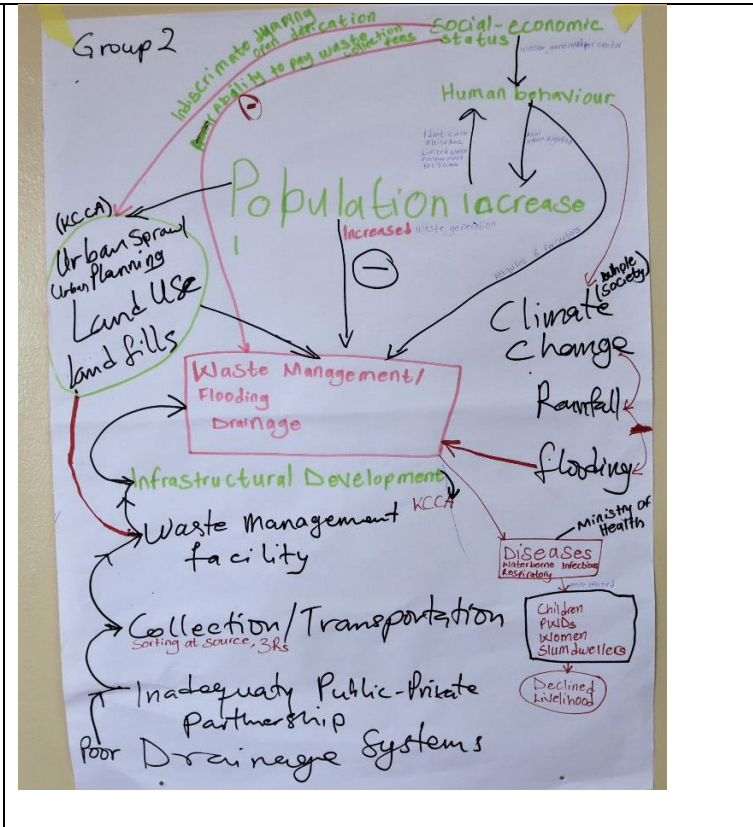 Group 2
Indiscrimate dumping
open defication
Poor ability to pay waste
collection
fees
Social-economic
status
Human behaviour
Population increase
Increased waste generation
(KCCA)
Urban Sprawl
Urban Planning
Land Use
land fills
(whole
society)
Climate
Change
Rainfall
flooding
Waste Management/
Flooding
Drainage
Infrastructural Development
KCCA
Waste Management
facility
Ministry of
Health
Diseases
Waterborne Infections
Respiratory
Collection/Transportation
Sorting at source, 3Rs
Children
PWDs
Women
Slum dwellers
Declined
Livelihood
Inadequaty Public-Private
Partnership
Poor Drainage Systems